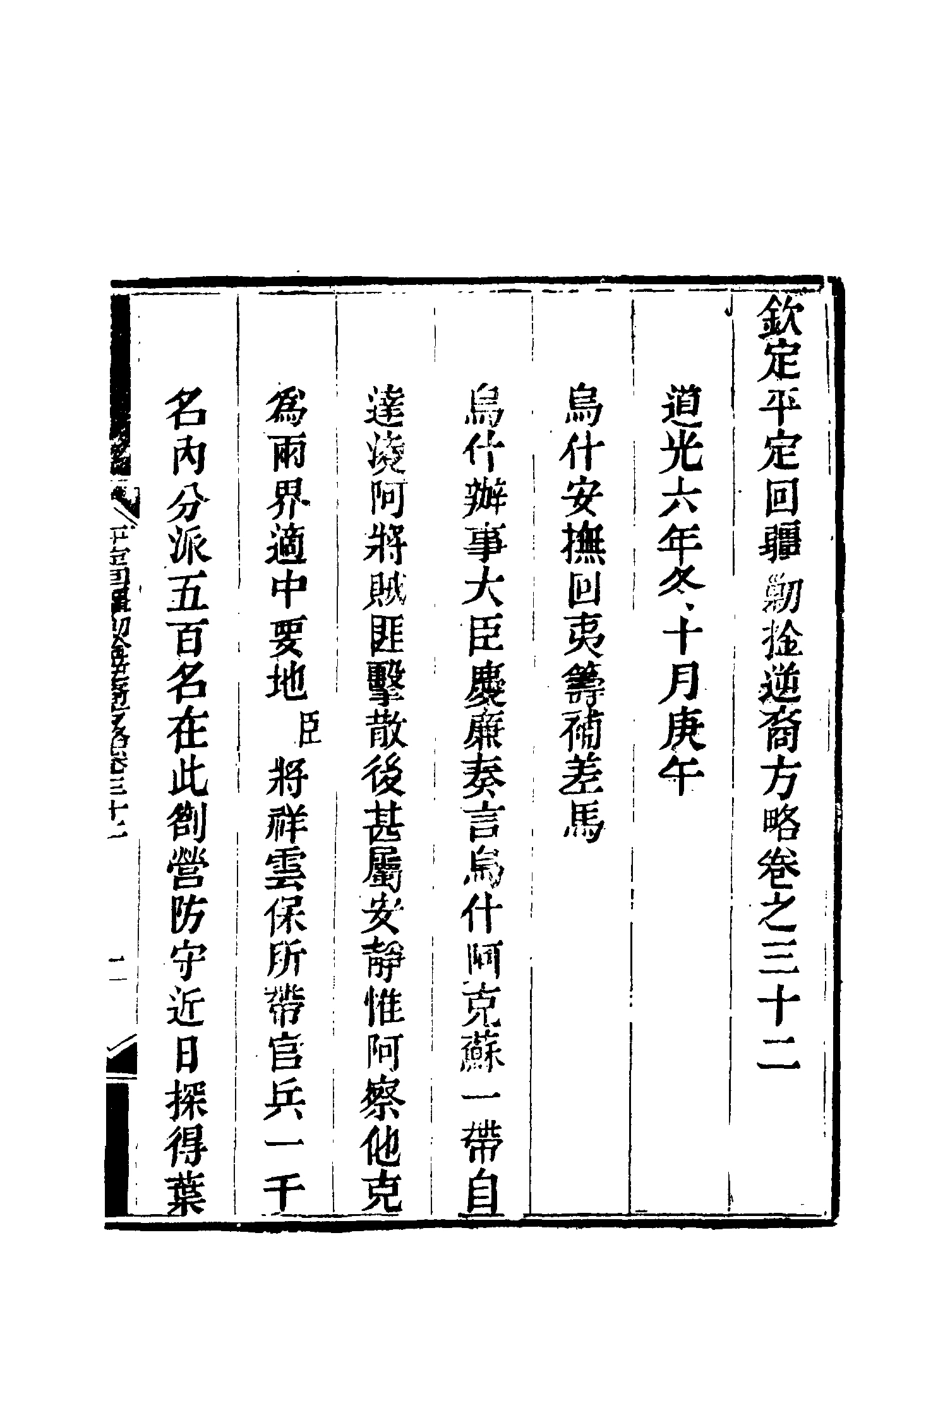 欽定平定回疆勦捦逆裔方略卷之三十二
道光六年冬十月庚午
烏什安撫回夷籌補差馬
烏什辦事大臣慶廉奏言烏什阿克蘇一帶自
達淩阿將賊匪擊散後甚屬安靜惟阿察他克
爲兩界適中要地臣將祥雲保所帶官兵一千
名內分派五百名在此劄營防守近日探得葉
平定回疆勦捦逆裔方略卷三十二